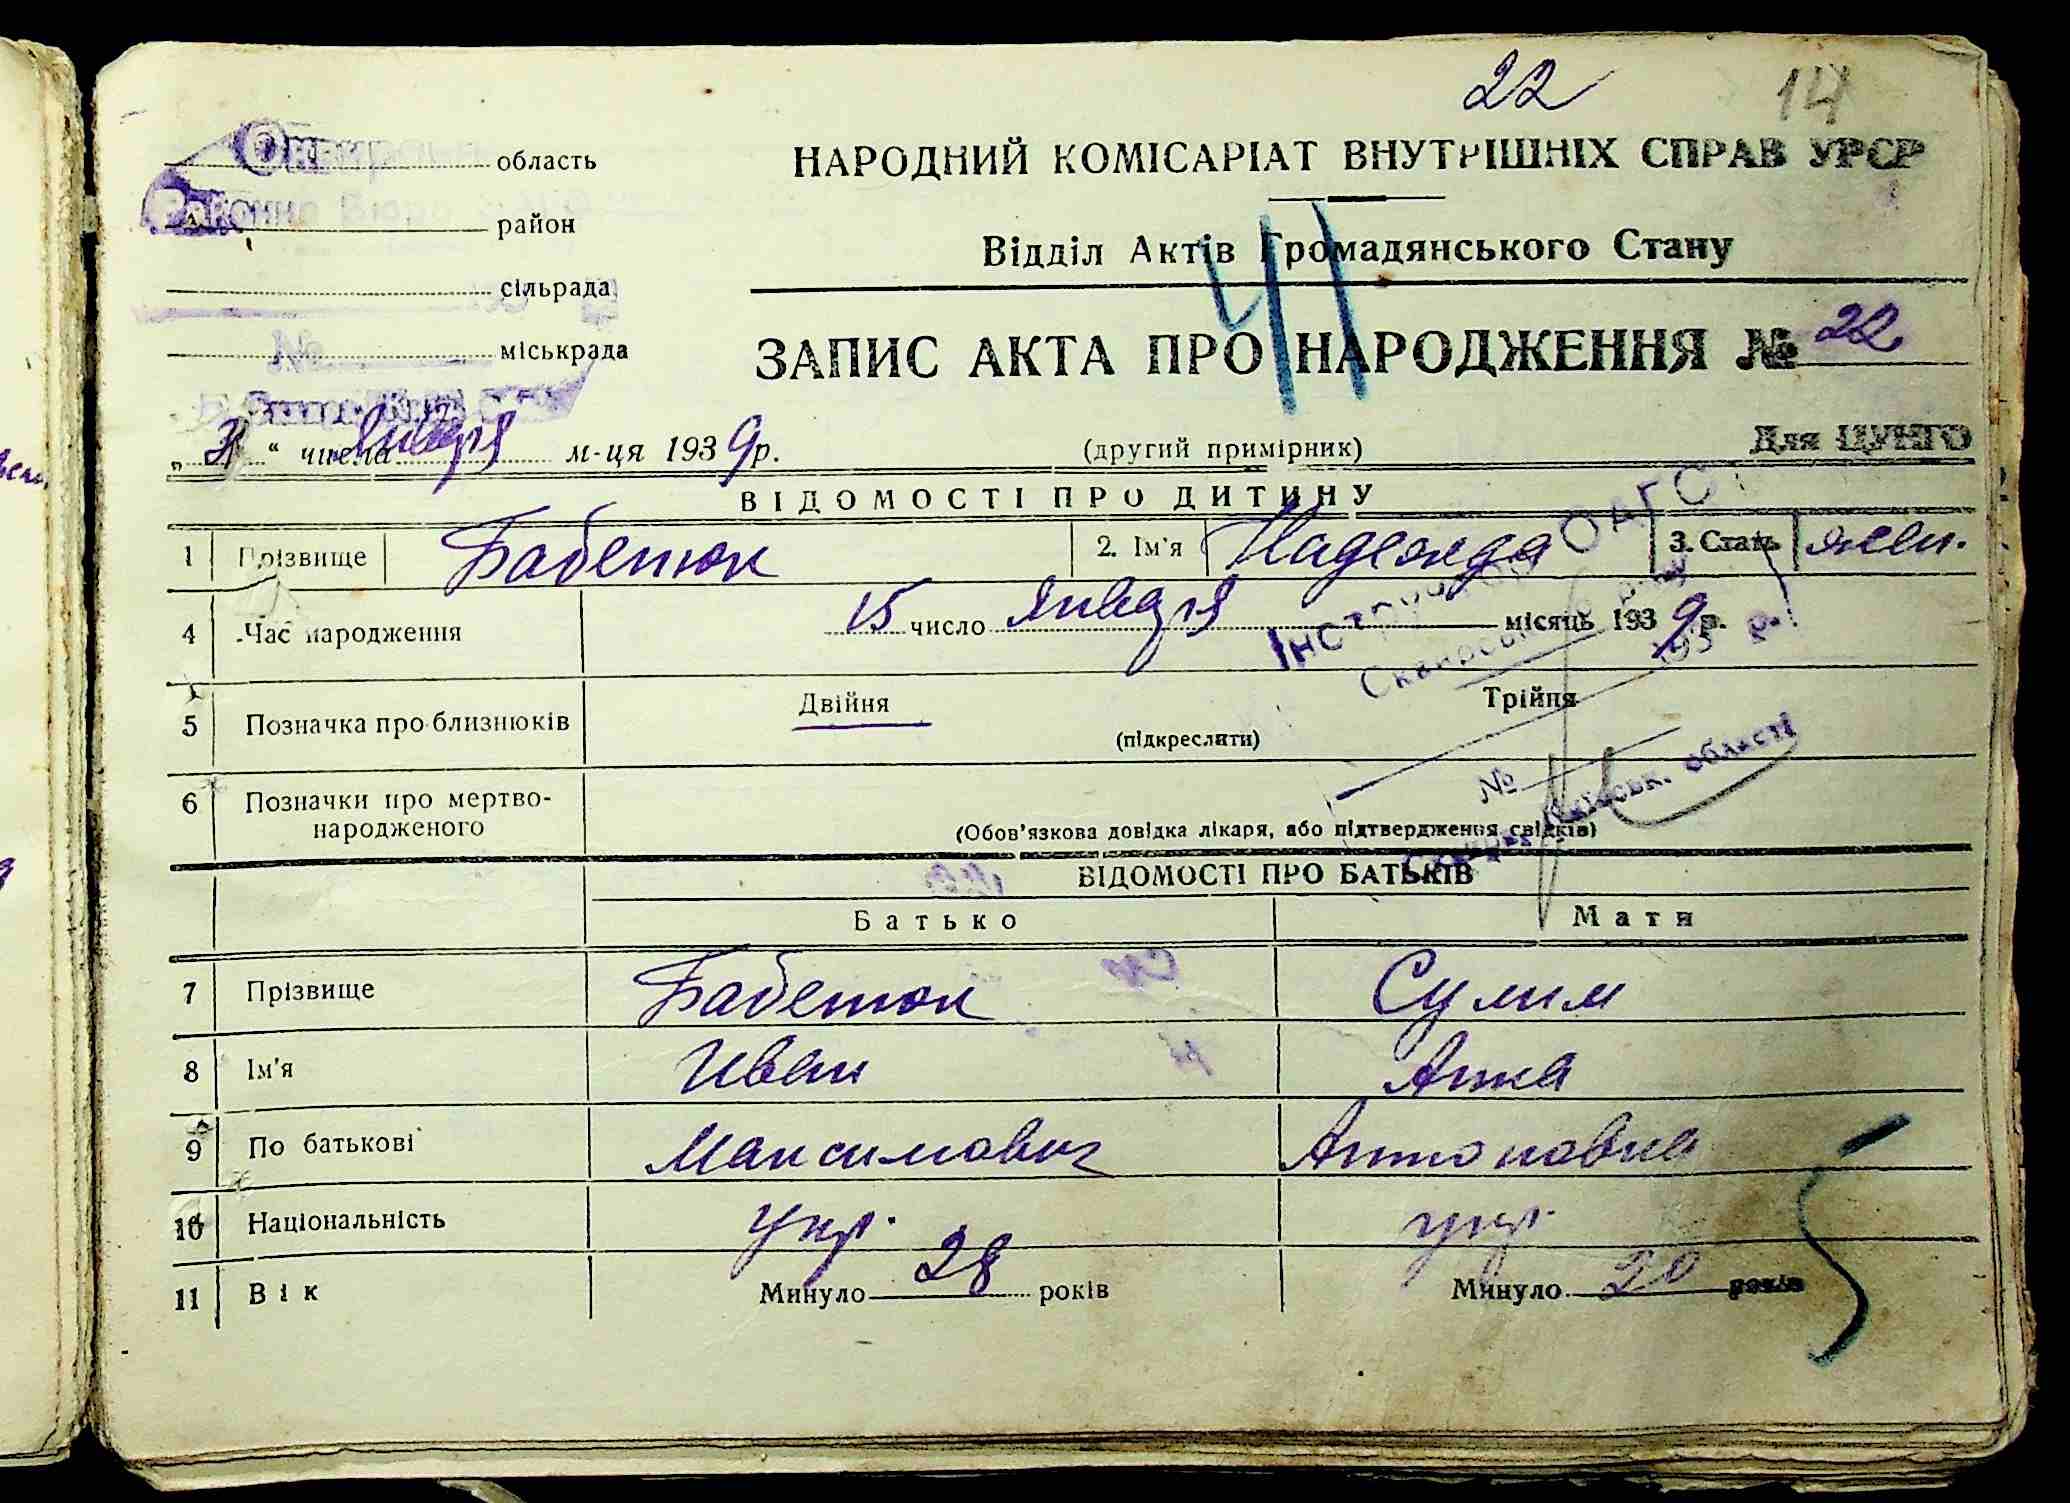 22 14
область
НАРОДНИЙ КОМІСАРІАТ ВНУТРІШНІХ СПРАВ УРСР
район
Відділ Актів Громадянського Стану
41
сільрада
№
міськрада
ЗАПИС АКТА ПРО НАРОДЖЕННЯ № 22
„ “ числа января м-ця 1939р.
(другий примірник)
Для ЦУНГО
ВІДОМОСТІ ПРО ДИТИНУ
1 Прізвище Бабенюк 2. Ім'я Надежда 3. Стать жен.
4 Час народження 15 число января місяць 1939р.
5 Позначка про близнюків Двійня Трійня
(підкреслити)
6 Позначки про мертво-
народженого
(Обов'язкова довідка лікаря, або підтвердження свідків)
Інструктор ОАГС
193 р.
№
області
ВІДОМОСТІ ПРО БАТЬКІВ
Батько Мати
7 Прізвище Бабенюк Сулим
8 Ім'я Иван Анна
9 По батькові Максимович Антоновна
10 Національність укр. укр.
11 Вік Минуло 28 років Минуло 20 років